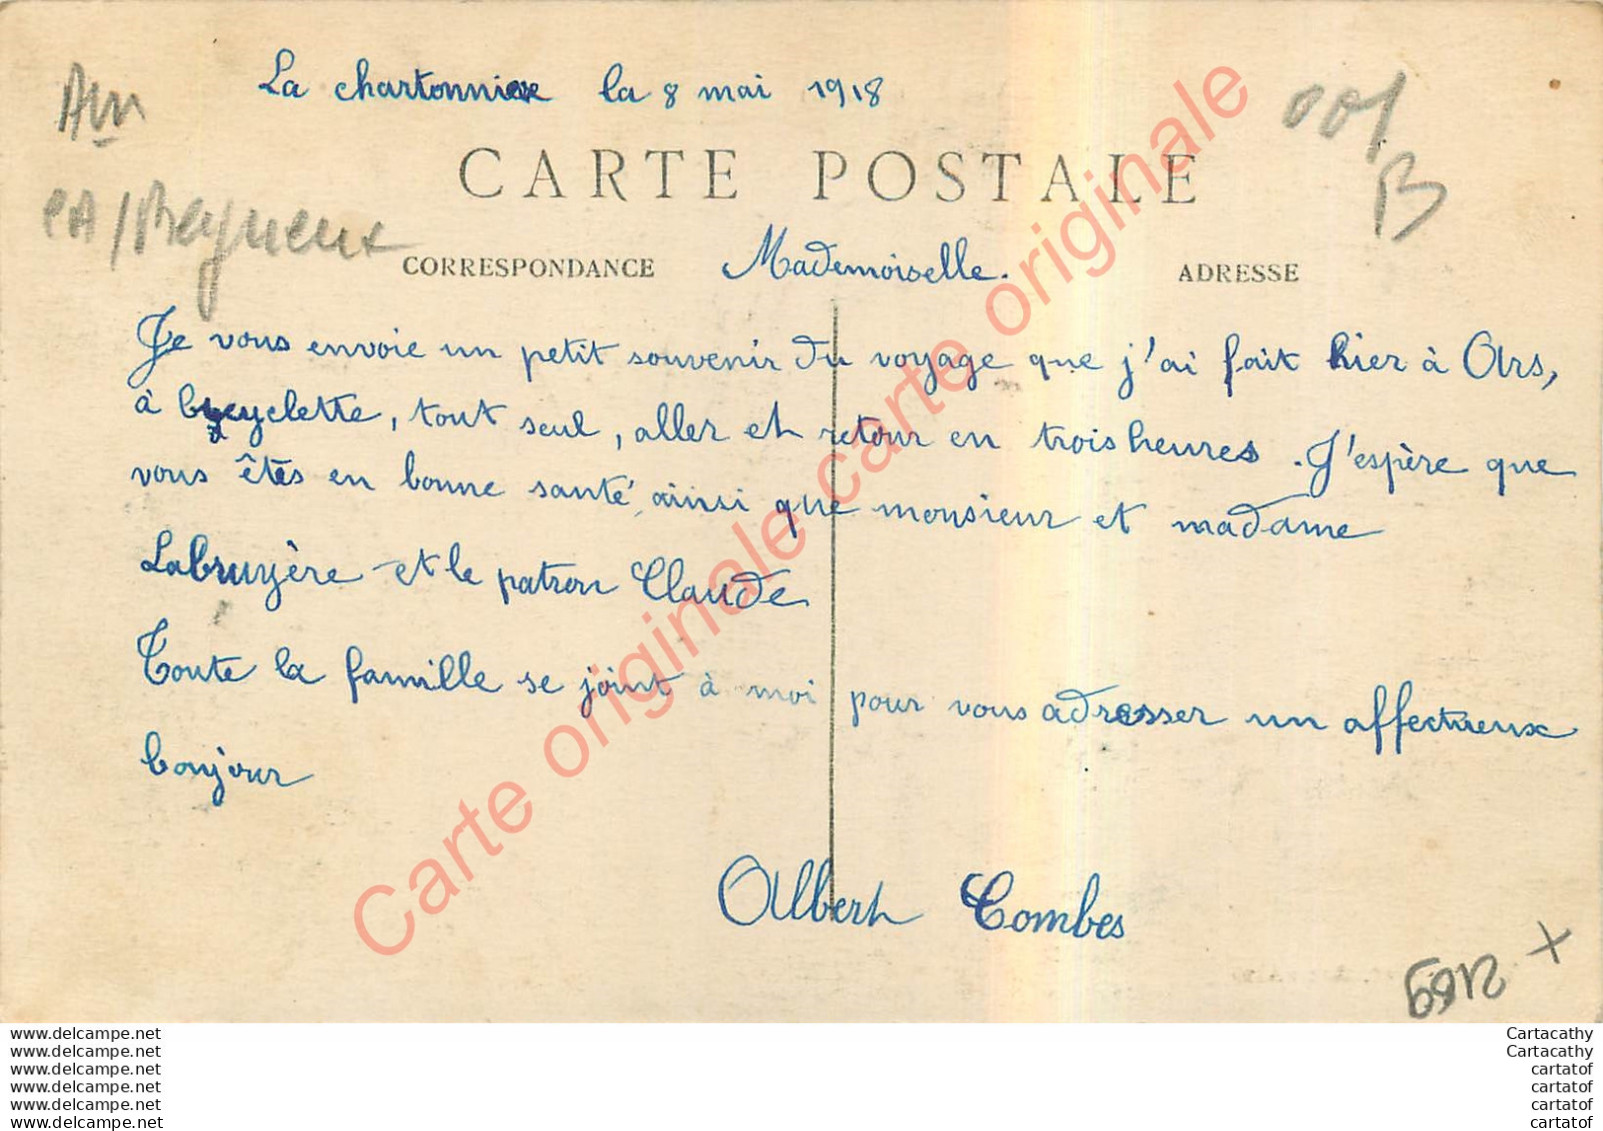 La chartonnière la 8 mai 1918
Ain
001
B
CARTE POSTALE
CA/Reyrieux
CORRESPONDANCE
Mademoiselle.
ADRESSE
Je vous envoie un petit souvenir du voyage que j'ai fait hier à Ars,
à bycyclette, tout seul, aller et retour en trois heures. J'espère que
vous êtes en bonne santé, ainsi que monsieur et madame
Labruyère et le patron Claude
Toute la famille se joint à moi pour vous adresser un affectueux
bonjour
Albert Combes
Carte originale carte originale
www.delcampe.net
www.delcampe.net
www.delcampe.net
www.delcampe.net
www.delcampe.net
www.delcampe.net
Cartacathy
Cartacathy
cartatof
cartatof
cartatof
cartatof